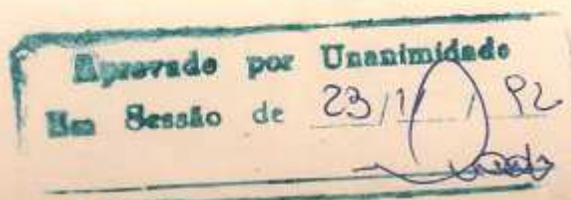 Aprovado por Unanimidade
Em Sessão de 23/11/92